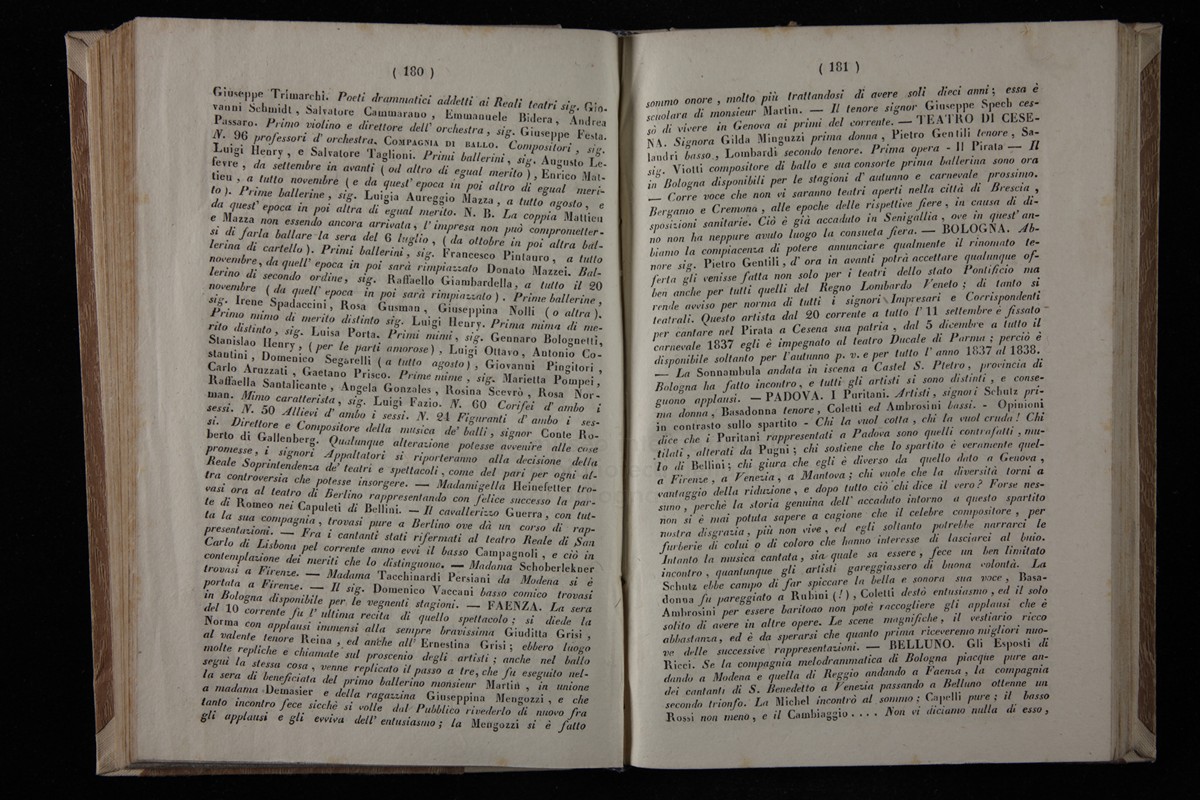 ( 180 )
Giuseppe Trimarchi. Poeti drammatici addetti ai Reali teatri sig. Gio-
vanni Schmidt, Salvatore Cammarano, Emmanuele Bidera, Andrea
Passaro. Primo violino e direttore dell' orchestra, sig. Giuseppe Festa.
N. 96 professori d' orchestra. COMPAGNIA DI BALLO. Compositori, sig.
Luigi Henry, e Salvatore Taglioni. Primi ballerini, sig. Augusto Le-
fevre, da settembre in avanti (od altro di egual merito), Enrico Mat-
tieu, a tutto novembre (e da quest' epoca in poi altro di egual meri-
to). Prime ballerine, sig. Luigia Aureggio Mazza, a tutto agosto, e
da quest' epoca in poi altra di egual merito. N. B. La coppia Mattieu
e Mazza non essendo ancora arrivata, l' impresa non può comprometter-
si di farla ballare la sera del 6 luglio, (da ottobre in poi altra bal-
lerina di cartello). Primi ballerini, sig. Francesco Pintauro, a tutto
novembre, da quell' epoca in poi sarà rimpiazzato Donato Mazzei. Bal-
lerino di secondo ordine, sig. Raffaello Giambardella, a tutto il 20
novembre (da quell' epoca in poi sarà rimpiazzato). Prime ballerine,
sig. Irene Spadaccini, Rosa Gusman, Giuseppina Nolli (o altra).
Primo mimo di merito distinto sig. Luigi Henry. Prima mima di me-
rito distinto, sig. Luisa Porta. Primi mimi, sig. Gennaro Bolognetti,
Stanislao Henry, (per le parti amorose), Luigi Ottavo, Antonio Co-
stantini, Domenico Segarelli (a tutto agosto), Giovanni Pingitori,
Carlo Aruzzati, Gaetano Prisco. Prime mime, sig. Marietta Pompei,
Raffaella Santalicante, Angela Gonzales, Rosina Scevrò, Rosa Nor-
man. Mimo caratterista, sig. Luigi Fazio. N. 60 Corifei d' ambo i
sessi. N. 50 Allievi d' ambo i sessi. N. 24 Figuranti d' ambo i ses-
si. Direttore e Compositore della musica de' balli, signor Conte Ro-
berto di Gallenberg. Qualunque alterazione potesse avvenire alle cose
promesse, i signori Appaltatori si riporteranno alla decisione della
Reale Soprintendenza de' teatri e spettacoli, come del pari per ogni al-
tra controversia che potesse insorgere. — Madamigella Heinefetter tro-
vasi ora al teatro di Berlino rappresentando con felice successo la par-
te di Romeo nei Capuleti di Bellini. — Il cavallerizzo Guerra, con tut-
ta la sua compagnia, trovasi pure a Berlino ove dà un corso di rap-
presentazioni. — Fra i cantanti stati rifermati al teatro Reale di San
Carlo di Lisbona pel corrente anno evvi il basso Campagnoli, e ciò in
contemplazione dei meriti che lo distinguono. — Madama Schoberlekner
trovasi a Firenze. — Madama Tacchinardi Persiani da Modena si è
portata a Firenze. — Il sig. Domenico Vaccani basso comico trovasi
in Bologna disponibile per le vegnenti stagioni. — FAENZA. La sera
del 10 corrente fu l' ultima recita di quello spettacolo; si diede la
Norma con applausi immensi alla sempre bravissima Giuditta Grisi,
al valente tenore Reina, ed anche all' Ernestina Grisi; ebbero luogo
molte repliche e chiamate sul proscenio degli artisti; anche nel ballo
seguì la stessa cosa, venne replicato il passo a tre, che fu eseguito nel-
la sera di beneficiata del primo ballerino monsieur Martin, in unione
a madama Demasier e della ragazzina Giuseppina Mengozzi, e che
tanto incontro fece sicchè si volle dal Pubblico rivederlo di nuovo fra
gli applausi e gli evviva dell' entusiasmo; la Mengozzi si è fatto
( 181 )
sommo onore, molto più trattandosi di avere soli dieci anni; essa è
scuolara di monsieur Martin. — Il tenore signor Giuseppe Spech ces-
sò di vivere in Genova ai primi del corrente. — TEATRO DI CESE-
NA. Signora Gilda Minguzzi prima donna, Pietro Gentili tenore, Sa-
landri basso, Lombardi secondo tenore. Prima opera - Il Pirata — Il
sig. Viotti compositore di ballo e sua consorte prima ballerina sono ora
in Bologna disponibili per le stagioni d' autunno e carnevale prossimo.
— Corre voce che non vi saranno teatri aperti nella città di Brescia,
Bergamo e Cremona, alle epoche delle rispettive fiere, in causa di di-
sposizioni sanitarie. Ciò è già accaduto in Senigallia, ove in quest' an-
no non ha neppure avuto luogo la consueta fiera. — BOLOGNA. Ab-
biamo la compiacenza di potere annunciare qualmente il rinomato te-
nore sig. Pietro Gentili, d' ora in avanti potrà accettare qualunque of-
ferta gli venisse fatta non solo per i teatri dello stato Pontificio ma
ben anche per tutti quelli del Regno Lombardo Veneto; di tanto si
rende avviso per norma di tutti i signori Impresari e Corrispondenti
teatrali. Questo artista dal 20 corrente a tutto l' 11 settembre è fissato
per cantare nel Pirata a Cesena sua patria, dal 5 dicembre a tutto il
carnevale 1837 egli è impegnato al teatro Ducale di Parma; perciò è
disponibile soltanto per l' autunno p. v. e per tutto l' anno 1837 al 1838.
— La Sonnambula andata in iscena a Castel S. Pietro, provincia di
Bologna ha fatto incontro, e tutti gli artisti si sono distinti, e conse-
guono applausi. — PADOVA. I Puritani. Artisti, signori Schutz pri-
ma donna, Basadonna tenore, Coletti ed Ambrosini bassi. - Opinioni
in contrasto sullo spartito - Chi la vuol cotta, chi la vuol cruda! Chi
dice che i Puritani rappresentati a Padova sono quelli contrafatti, mu-
tilati, alterati da Pugni; chi sostiene che lo spartito è veramente quel-
lo di Bellini; chi giura che egli è diverso da quello dato a Genova,
a Firenze, a Venezia, a Mantova; chi vuole che la diversità torni a
vantaggio della riduzione, e dopo tutto ciò chi dice il vero? Forse nes-
suno, perchè la storia genuina dell' accaduto intorno a questo spartito
non si è mai potuta sapere a cagione che il celebre compositore, per
nostra disgrazia, più non vive, ed egli soltanto potrebbe narrarci le
furberie di colui o di coloro che hanno interesse di lasciarci al buio.
Intanto la musica cantata, sia quale sa essere, fece un ben limitato
incontro, quantunque gli artisti gareggiassero di buona volontà. La
Schutz ebbe campo di far spiccare la bella e sonora sua voce, Basa-
donna fu pareggiato a Rubini (!), Coletti destò entusiasmo, ed il solo
Ambrosini per essere baritono non potè raccogliere gli applausi che è
solito di avere in altre opere. Le scene magnifiche, il vestiario ricco
abbastanza, ed è da sperarsi che quanto prima riceveremo migliori nuo-
ve delle successive rappresentazioni. — BELLUNO. Gli Esposti di
Ricci. Se la compagnia melodrammatica di Bologna piacque pure an-
dando a Modena e quella di Reggio andando a Faenza, la compagnia
dei cantanti di S. Benedetto a Venezia passando a Belluno ottenne un
secondo trionfo. La Michel incontrò al sommo; Capelli pure; il basso
Rossi non meno, e il Cambiaggio.... Non vi diciamo nulla di esso,